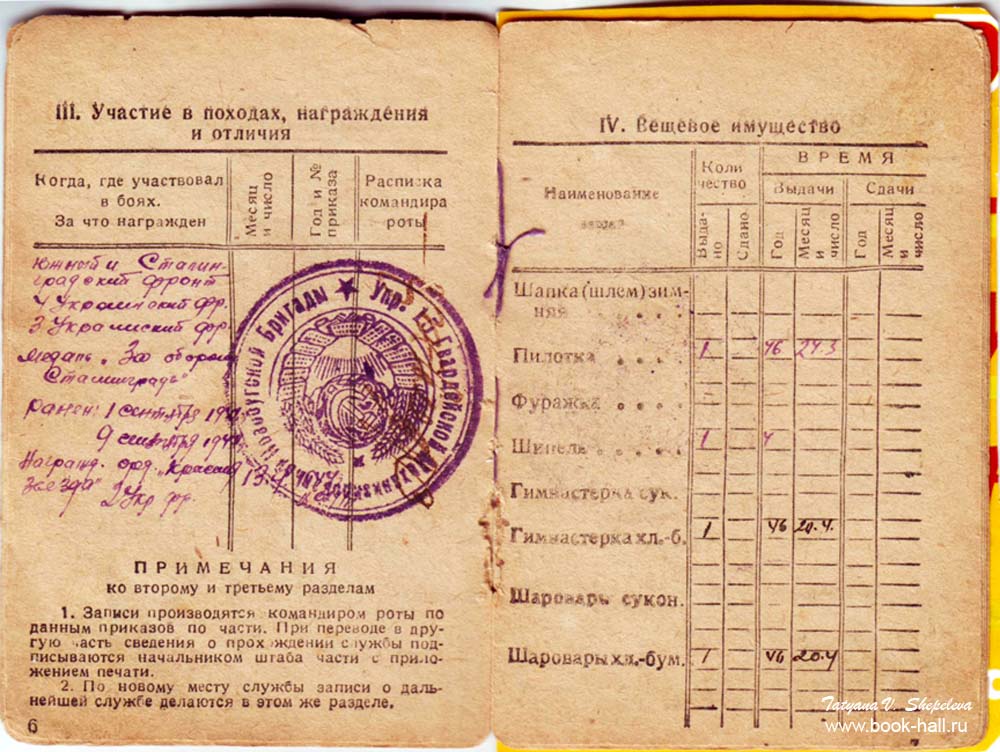 III. Участие в походах, награждения
и отличия
Когда, где участвовал
в боях.
За что награжден
Месяц
и число
Год и №
приказа
Расписка
командира
роты
Южный и Сталин-
градский фронт
4 Украинский фр.
3 Украинский фр.
Медаль „За оборону
Сталинграда"
ранен: 1 сентября
9 сентября
Награжд. орд. „Красная
Звезда"
2 Укр фр.
Упр. 13 Гвардейской Механизиров
Новобугской Бригады
ПРИМЕЧАНИЯ
ко второму и третьему разделам
1. Записи производятся командиром роты по
данным приказов по части. При переводе в дру-
гую часть сведения о прохождении службы под-
писываются начальником штаба части с прило-
жением печати.
2. По новому месту службы записи о даль-
нейшей службе делаются в этом же разделе.
6
IV. Вещевое имущество
Наименование
вещей
Коли
чество
ВРЕМЯ
Выдачи
Сдачи
Выда-
но
Сдано
Год
Месяц
и
число
Год
Месяц
и
число
Шапка (шлем) зим-
няя . . . .
Пилотка . . . . 1 46 24.3
Фуражка . . . .
Шинель . . . . 1
Гимнастерка сук.
Гимнастерка хл.-б. 1 46 20.4
Шаровары сукон.
Шаровары хл.-бум. 1 46 20.4
7
Tatyana V. Shepeleva
www.book-hall.ru